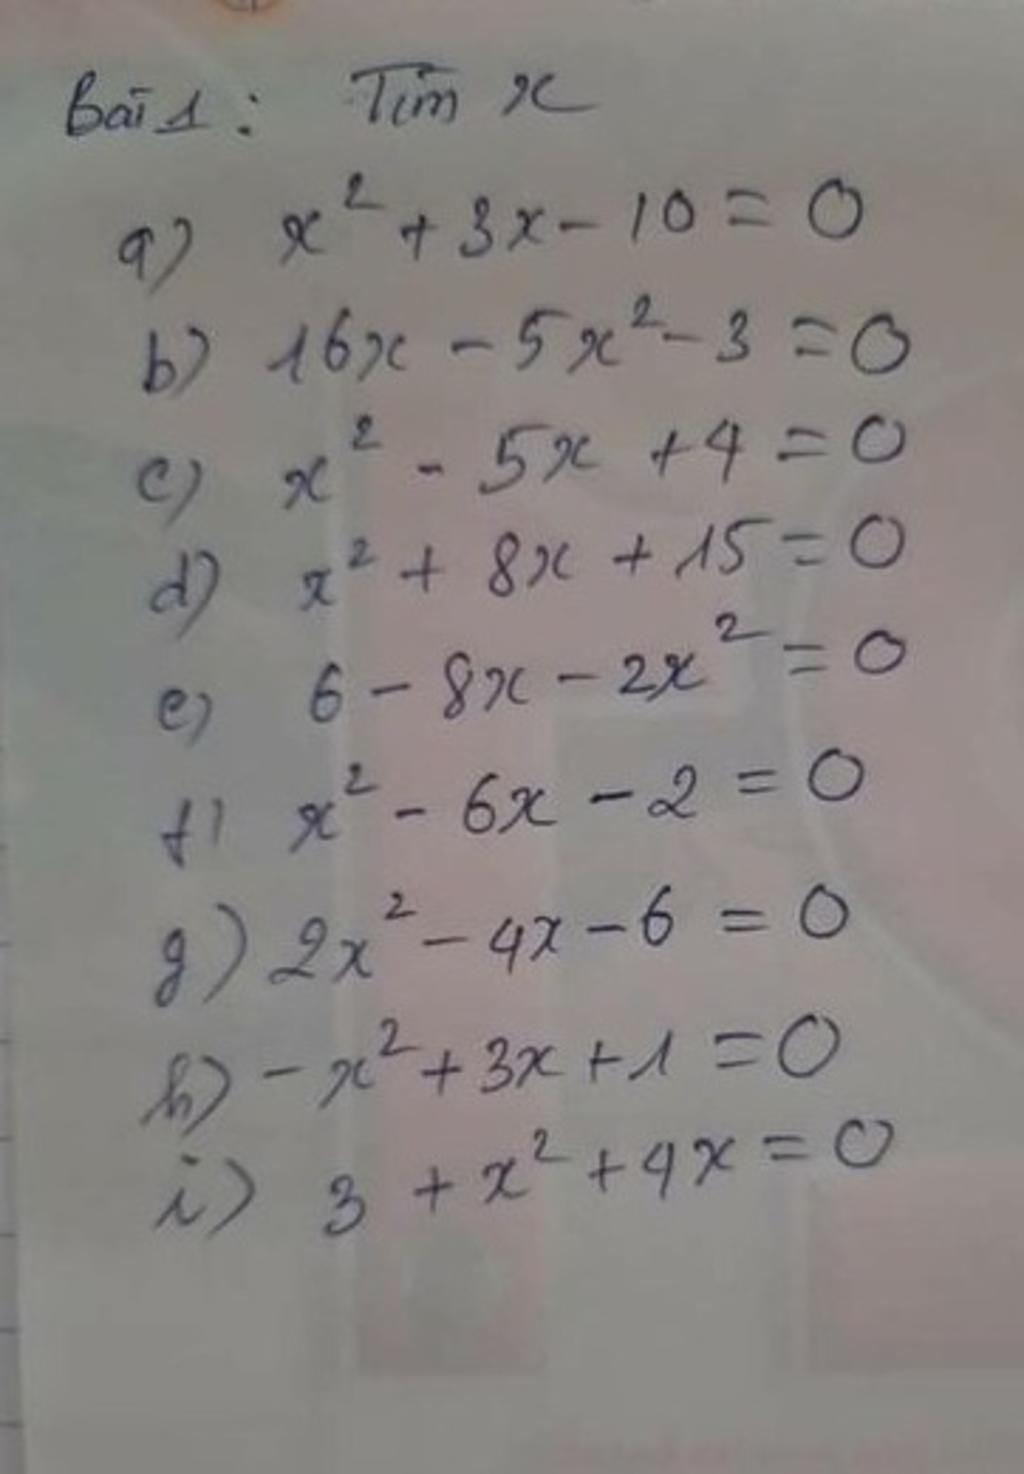 Bài 1: Tìm x
a) x² + 3x - 10 = 0
b) 16x - 5x² - 3 = 0
c) x² - 5x + 4 = 0
d) x² + 8x + 15 = 0
e) 6 - 8x - 2x² = 0
f) x² - 6x - 2 = 0
g) 2x² - 4x - 6 = 0
h) - x² + 3x + 1 = 0
i) 3 + x² + 4x = 0